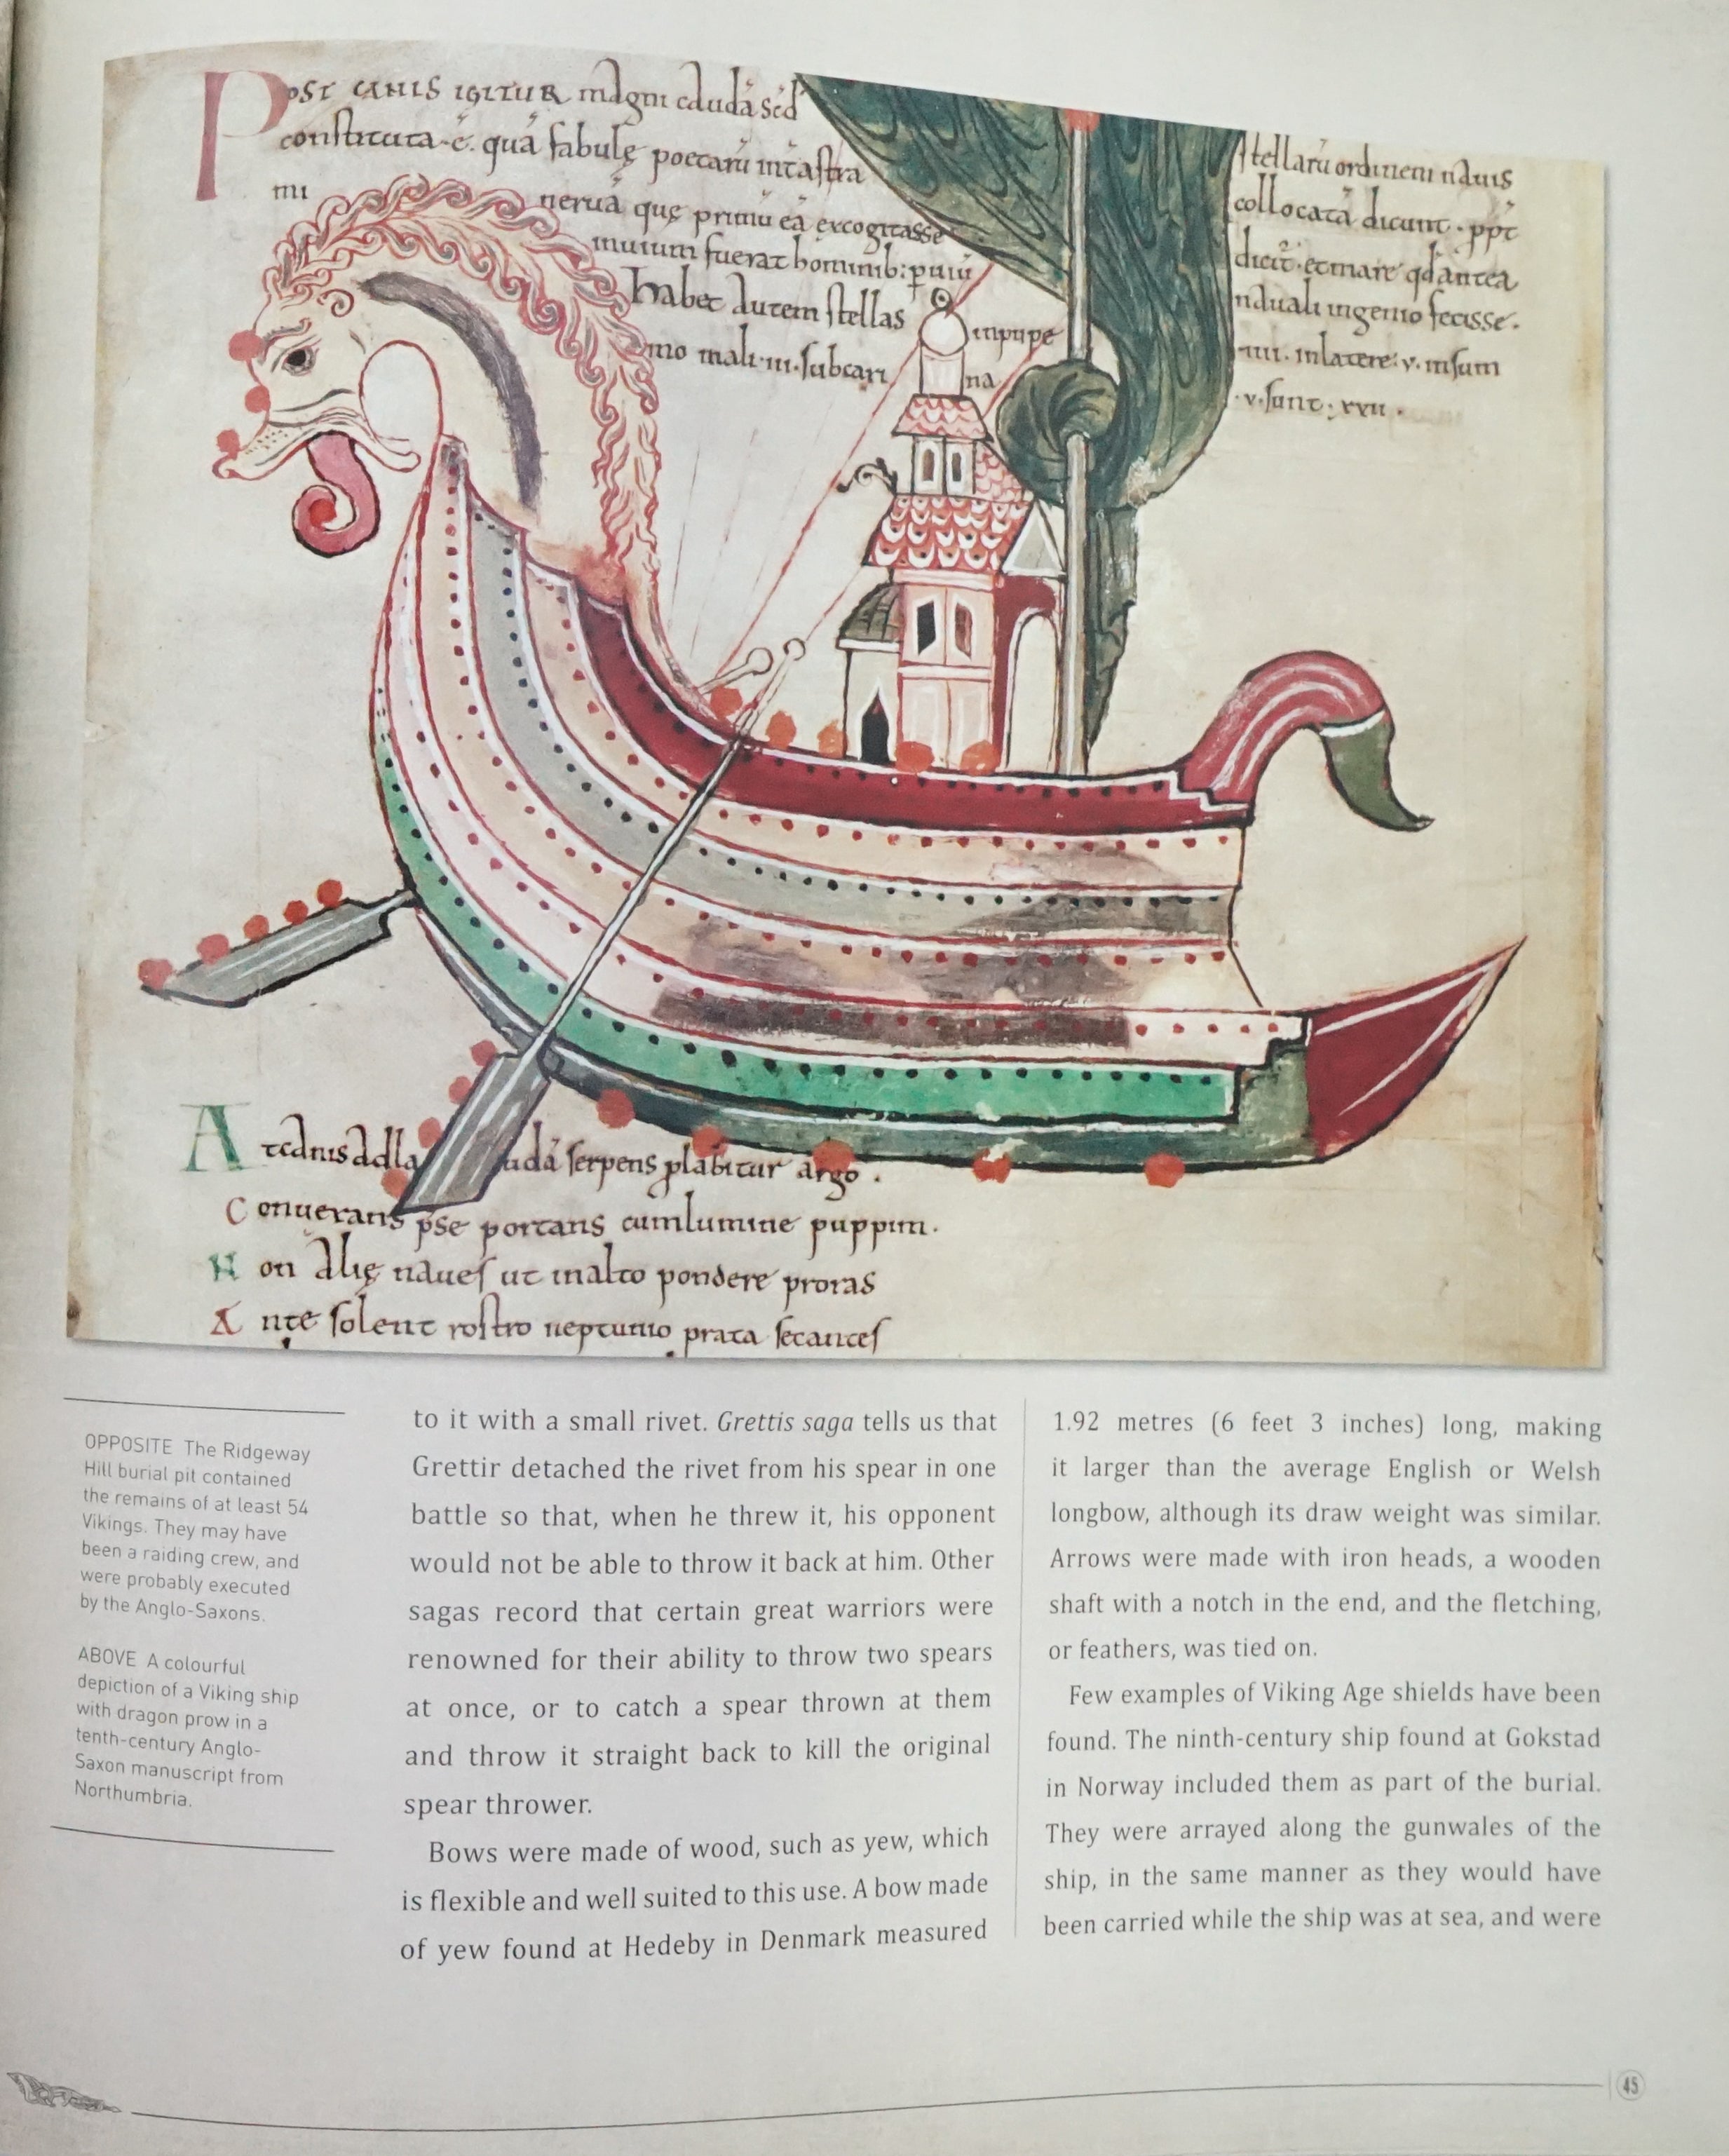 Post canis igitur magni caudā sēd
constituta·ē· quā fabulę poetarū int̄ astra stellarū ordinem nauis
mi neruā quę primū eā excogitasse collocatā dicunt·
inuium fuerat hominib: dicit̄· et mare qđ antea
habet autem stellas in pupe nauali ingenio fecisse·
mo mali·iii·sub cari na ·iiii· in latere·v· in sum
·v· sunt·xxii·
At canis ad cauda serpens plabitur argo·
Conuerans pse portans cum lumine puppim·
Non alię naues ut in alto pondere proras
Ante solent rostro neptunio prata secantes
OPPOSITE The Ridgeway
Hill burial pit contained
the remains of at least 54
Vikings. They may have
been a raiding crew, and
were probably executed
by the Anglo-Saxons.
ABOVE A colourful
depiction of a Viking ship
with dragon prow in a
tenth-century Anglo-
Saxon manuscript from
Northumbria.
to it with a small rivet. Grettis saga tells us that
Grettir detached the rivet from his spear in one
battle so that, when he threw it, his opponent
would not be able to throw it back at him. Other
sagas record that certain great warriors were
renowned for their ability to throw two spears
at once, or to catch a spear thrown at them
and throw it straight back to kill the original
spear thrower.
Bows were made of wood, such as yew, which
is flexible and well suited to this use. A bow made
of yew found at Hedeby in Denmark measured
1.92 metres (6 feet 3 inches) long, making
it larger than the average English or Welsh
longbow, although its draw weight was similar.
Arrows were made with iron heads, a wooden
shaft with a notch in the end, and the fletching,
or feathers, was tied on.
Few examples of Viking Age shields have been
found. The ninth-century ship found at Gokstad
in Norway included them as part of the burial.
They were arrayed along the gunwales of the
ship, in the same manner as they would have
been carried while the ship was at sea, and were
45